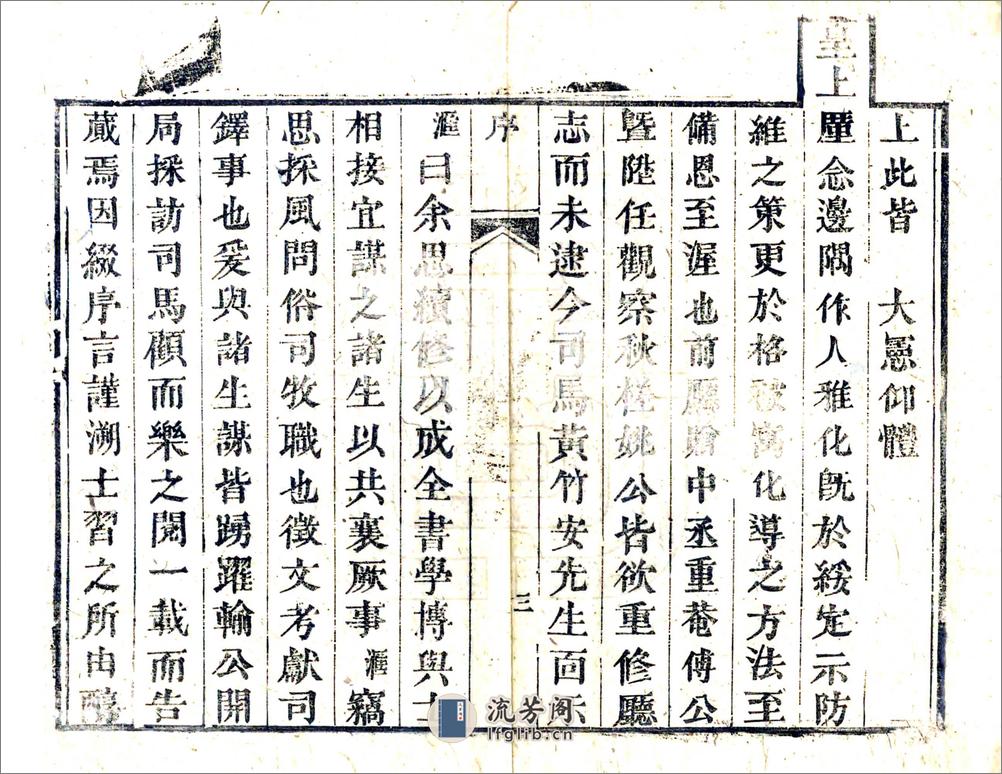 上此皆 大憲仰體
皇上
廑念邊隅作人雅化旣於綏定示防
維之策更於格被寓化導之方法至
備恩至渥也前廳贈中丞重菴傅公
暨陞任觀察秋樵姚公皆欲重修廳
志而未逮今司馬黃竹安先生面示
序
三
滙曰余思續修以成全書學博與士
相接宜謀之諸生以共襄厥事滙竊
思採風問俗司牧職也徵文考獻司
鐸事也爰與諸生謀皆踴躍輸公開
局採訪司馬顧而樂之閱一載而告
蕆焉因綴序言謹溯士習之所由醇
流芳阁
lfglib.cn